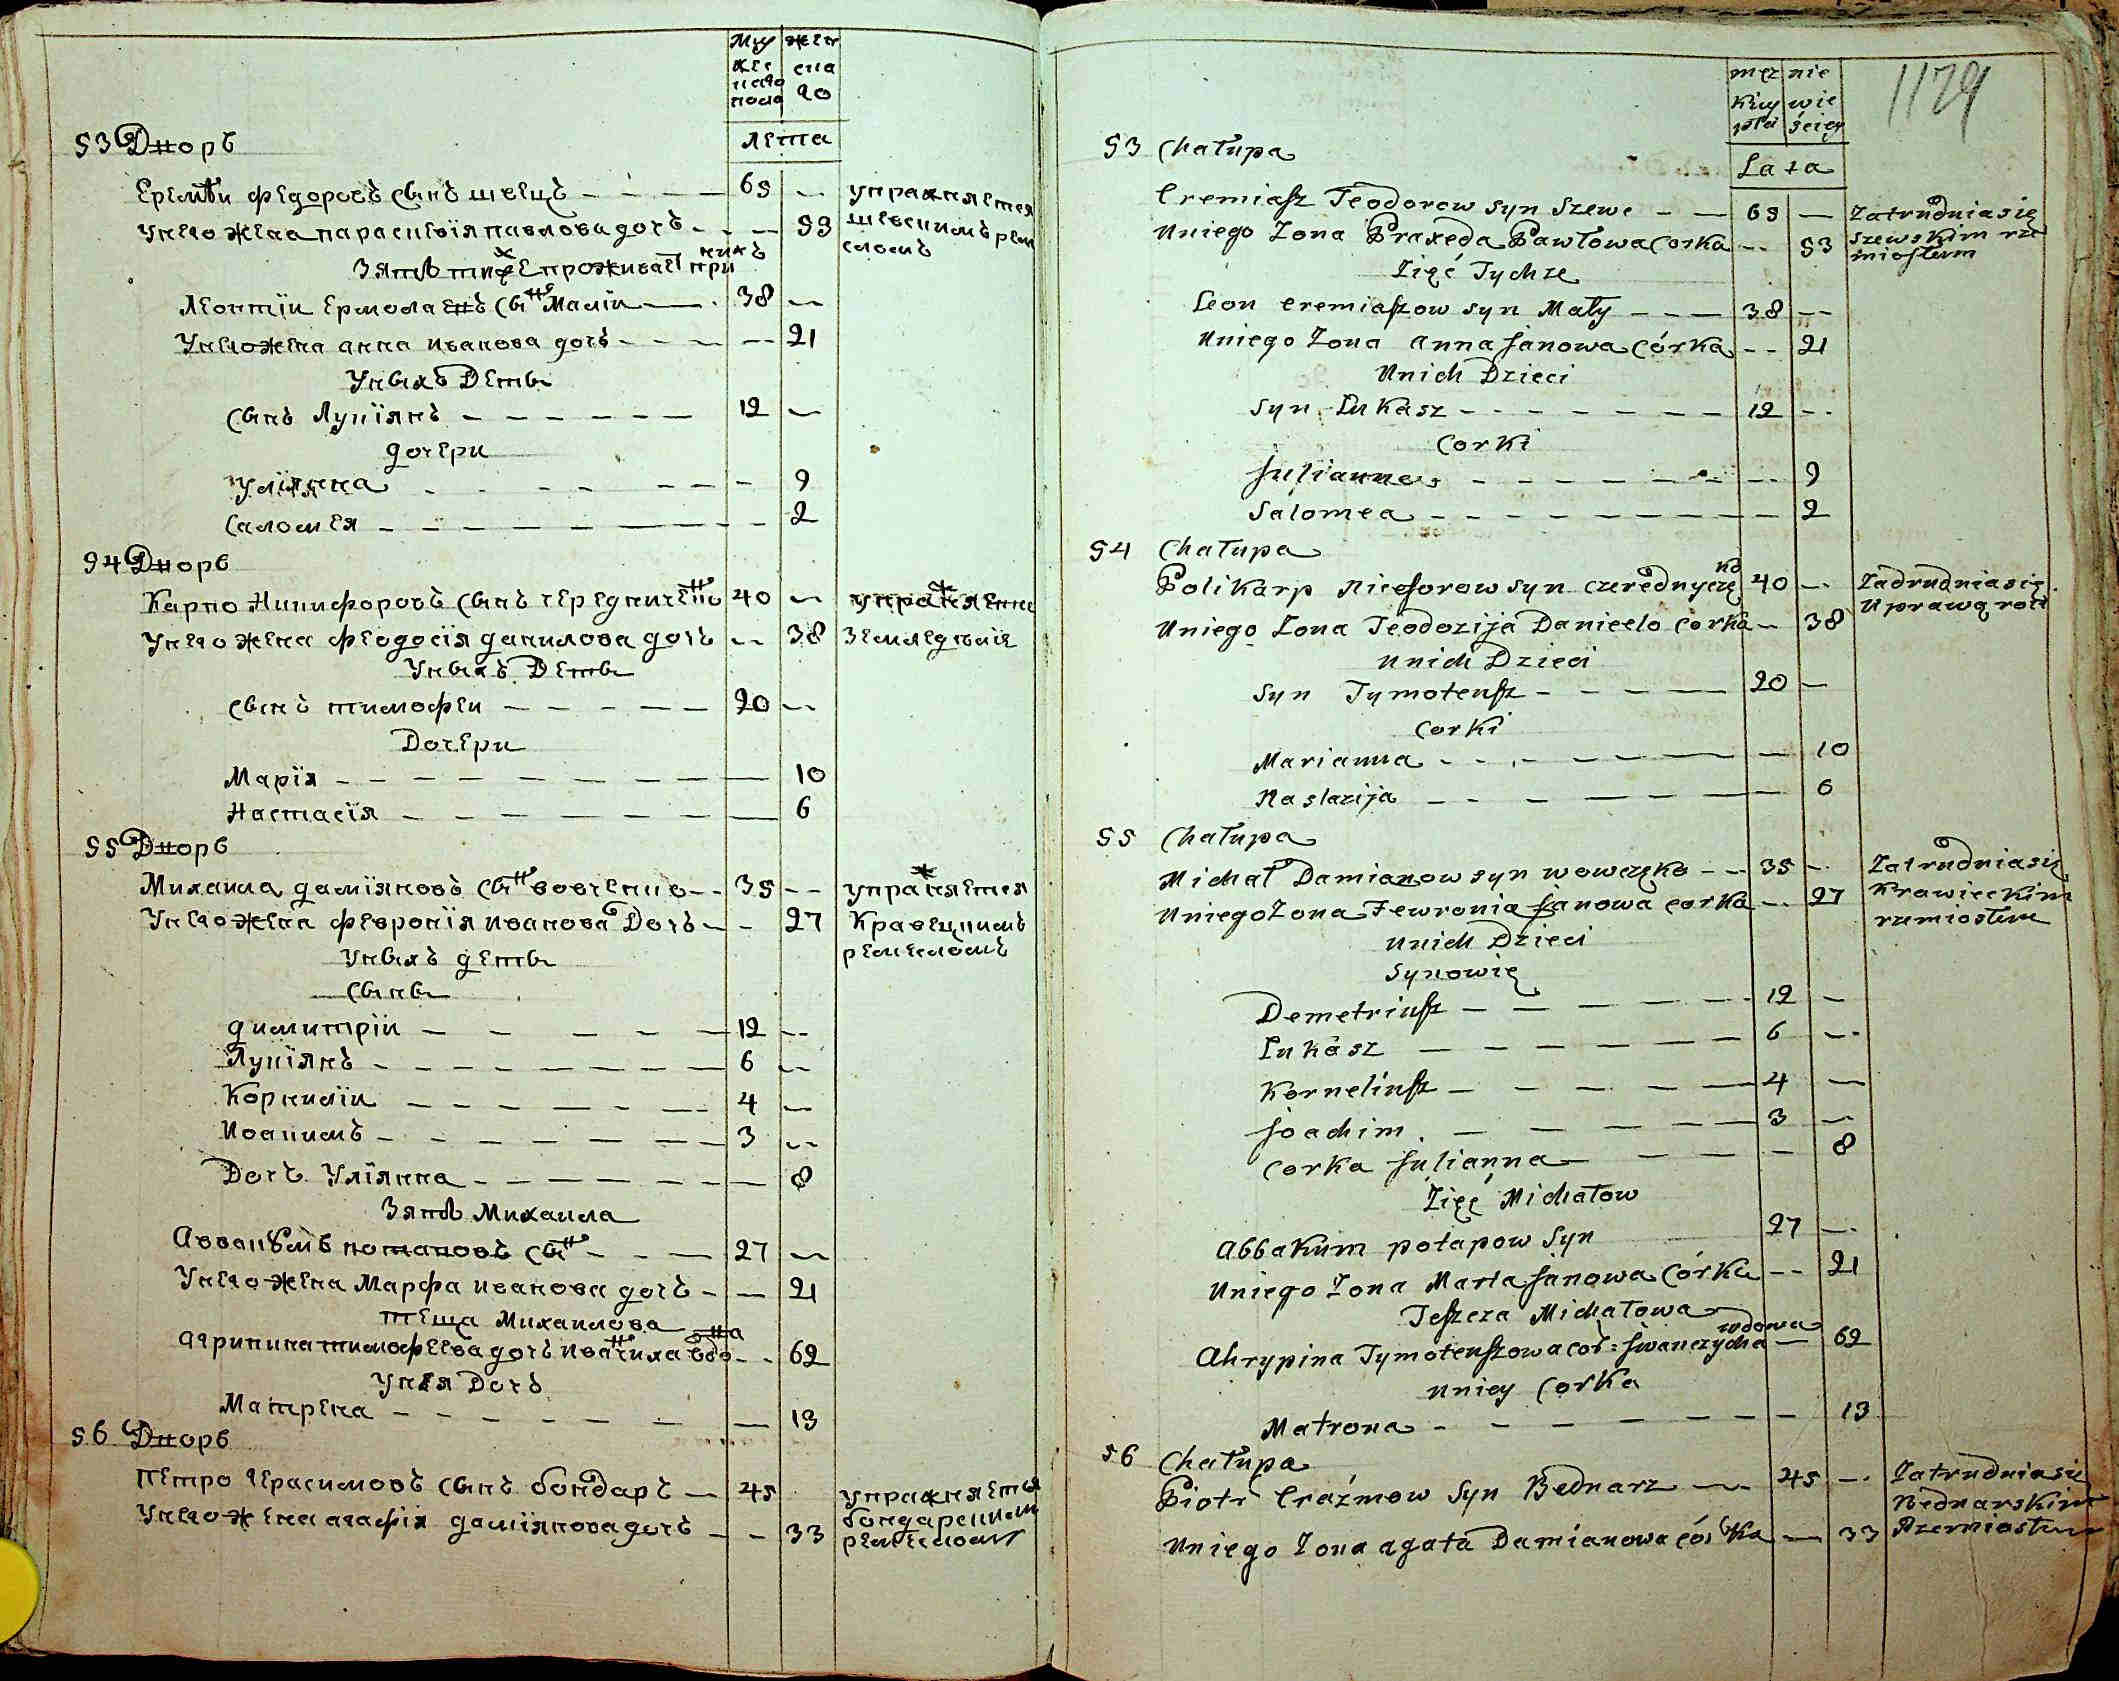 Мужескаго пола
женскаго
лета
53 Дворъ
Еремѣи федоровъ сынъ швецъ — 65 —
упражняется
У него жена параскевія павлова дочь — 53
шевскимъ ремесломъ
Зять тиҳже проживает при нихъ
Леонтіи ермолаевъ сынъ Маліи — 38 —
У него жена анна иванова дочь — 21
У ныхъ Деты
сынъ Лукіянъ — 12 —
дочери
Уліянна — 9
Саломея — 2
54 Дворъ
Карпо Никифоровъ сынъ чередниченко 40 —
упражнение
У него жена феодосія данилова дочь — 38
земледеліе
У ныхъ Деты
сынъ тимофеи — 20 —
Дочери
Марія — 10
Настасія — 6
55 Дворъ
Михаила даміяновъ сынъ вовченко — 35 —
упражняется
У него жена февронія иванова Дочь — 27
Кравецкимъ
ремесломъ
У ныхъ деты
сыны
димитріи — 12 —
Лукіянъ — 6 —
Корниліи — 4 —
Иоакимъ — 3 —
Дочь Уліянна — 8
Зять Михаила
Аввакумъ потаповъ сынъ — 27 —
У него жена Марфа иванова дочь — 21
теща Михаилова
агрипина тимофеева дочь иванчиха вдова — 62
У нея Дочь
Матрена — 13
56 Дворъ
Петро Герасимовъ сынъ бондаръ — 45
упражняется
бондарскимъ
У него жена агафія даміянова дочь — 33
ремесломъ
1129
męzkiey płci
niewieściey
Lata
53 Chałupa
Eremiasz Teodorow syn Szewc — 65 —
Zatrudnia się
Uniego Zona Praxeda Pawłowa Corka — 53
Szewskim rze
miosłem
Zięć Tychże
Leon eremiaszow syn Mały — 38 —
Uniego Zona anna Janowa Córka — 21
Unich Dzieci
Syn Łukasz — 12 —
Corki
Julianna — 9
Salomea — 2
54 Chałupa
Polikarp Niceforow syn czerednyczęko 40 —
Zadrudnia się
Uprawą roli
Uniego Zona Teodozija Danieelo Corka — 38
Unich Dzieci
Syn Tymoteusz — 20 —
Corki
Marianna — 10
Nastazija — 6
55 Chałupa
Michał Damianow syn wowczęko — 35 —
Zatrudnia się
Krawieckim
Uniego Zona Fewronia Janowa corka — 27
rzmiosłem
Unich Dzieci
Synowię
Demetriusz — 12 —
Łukasz — 6 —
Korneliusz — 4 —
Joachim — 3 —
Corka Julianna — 8
Zięć Michałow
Abbakum potapow Syn 27 —
Uniego Zona Marta Janowa Córka — 21
Teszcza Michałowa
Ahrypina Tymoteuszowa cor: Jwanczycha wdowa — 62
Uniey Corka
Matrona — 13
56 Chałupa
Piotr Erazmow Syn Bednarz — 45 —
Zatrudnia się
Bednarskim
Uniego Zona agata Damianowa córka — 33
Rzemiosłem